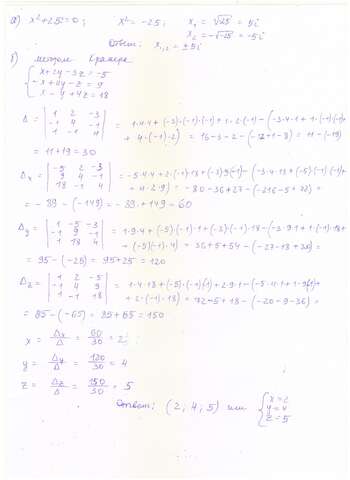 а) x²+25=0; x²=-25; x₁ = √25 = 5i
x₂ = -√-25 = -5i
Ответ: x₁,₂ = ±5i
б) методом Крамера
{ x+2y-3z=-5
-x+4y-z=9
x-y+4z=18
Δ = | 1 2 -3 | -1 4 -1 | 1 -1 4 | = 1·4·4+(-3)·(-1)·(-1)+1·2·(-1)-(-3·4·1+1·(-1)·(-1)+
+4·(-1)·2) = 16-3-2-(-12+1-8) = 11-(-19)
= 11+19=30
Δx = | -5 2 -3 | 9 4 -1 | 18 -1 4 | = -5·4·4+2·(-1)·18+(-3)·9(-1)-(-3·4·18+(-5)(-1)(-1)+
+4·2·9) = -80-36+27-(-216-5+72) =
= -89-(-149) = -89+149=60
Δy = | 1 -5 -3 | -1 9 -1 | 1 18 4 | = 1·9·4+(-5)·(-1)·1+(-3)·(-1)·18-(-3·9·1+1·(-1)·18+
+(-5)(-1)·4) = 36+5+54-(-27-18+20) =
= 95-(-25) = 95+25=120
Δz = | 1 2 -5 | -1 4 9 | 1 -1 18 | = 1·4·18+(-5)·(-1)(1)+2·9·1-(-5·4·1+1·9(1)+
+2·(-1)·18) = 72-5+18-(-20-9-36) =
= 85-(-65) = 85+65=150
x = Δx/Δ = 60/30 = 2;
y = Δy/Δ = 120/30 = 4
z = Δz/Δ = 150/30 = 5
Ответ: (2; 4; 5) или { x=2
y=4
z=5